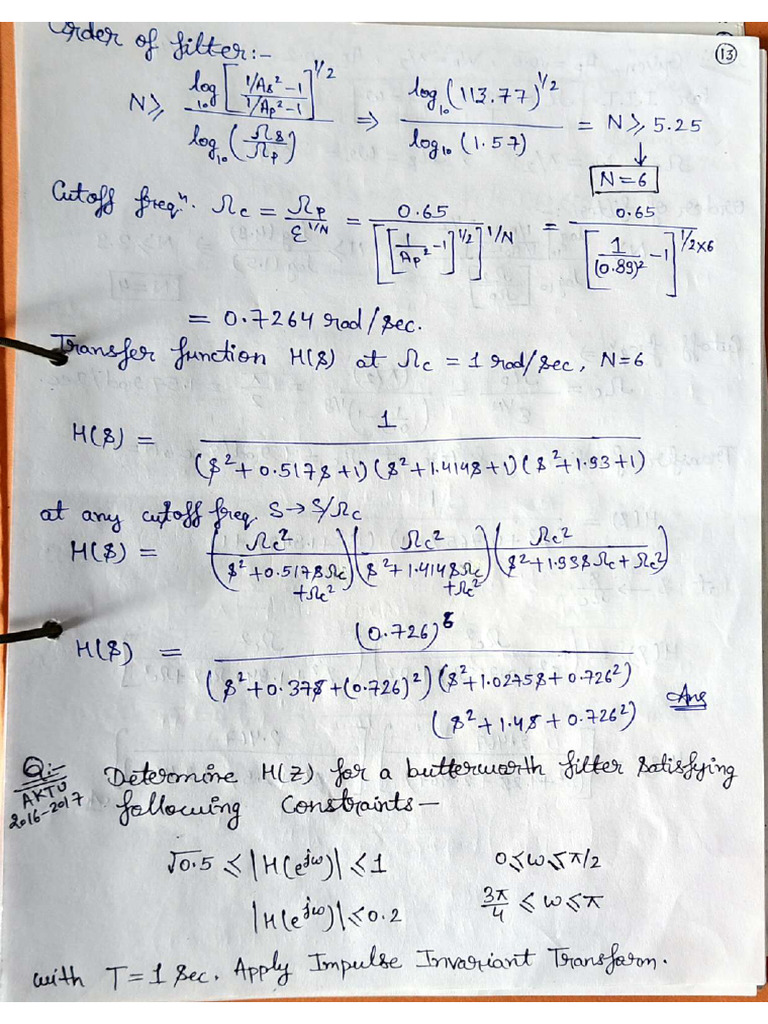 Order of filter:-
(13)
N ≥ log₁₀[(1/As² -1)/(1/Ap² -1)]^1/2 / log₁₀(Ωs/Ωp) ⇒ log₁₀(113.77)^1/2 / log₁₀(1.57) = N ≥ 5.25
↓
N=6
Cutoff freqⁿ. Ωc = Ωp/ε^1/N = 0.65/[[1/Ap² -1]^1/2]^1/N = 0.65/[1/(0.89)² -1]^1/2×6
= 0.7264 rad/sec.
Transfer function H(s) at Ωc = 1 rad/sec, N=6
H(s) = 1/(s²+0.517s+1)(s²+1.414s+1)(s²+1.93+1)
at any cutoff freq. S→S/Ωc
H(s) = (Ωc²/s²+0.517sΩc+Ωc²)(Ωc²/s²+1.414sΩc+Ωc²)(Ωc²/s²+1.93sΩc+Ωc²)
H(s) = (0.726)⁶/(s²+0.37s+(0.726)²)(s²+1.0275s+0.726²)
(s²+1.4s+0.726²) Ans
Q:- Determine H(Z) for a butterworth filter satisfying
AKTU
2016-2017
following Constraints—
√0.5 ≤ |H(e^jω)| ≤ 1 0≤ω≤π/2
|H(e^jω)| ≤ 0.2 3π/4 ≤ ω ≤ π
with T=1 sec. Apply Impulse Invariant Transform.